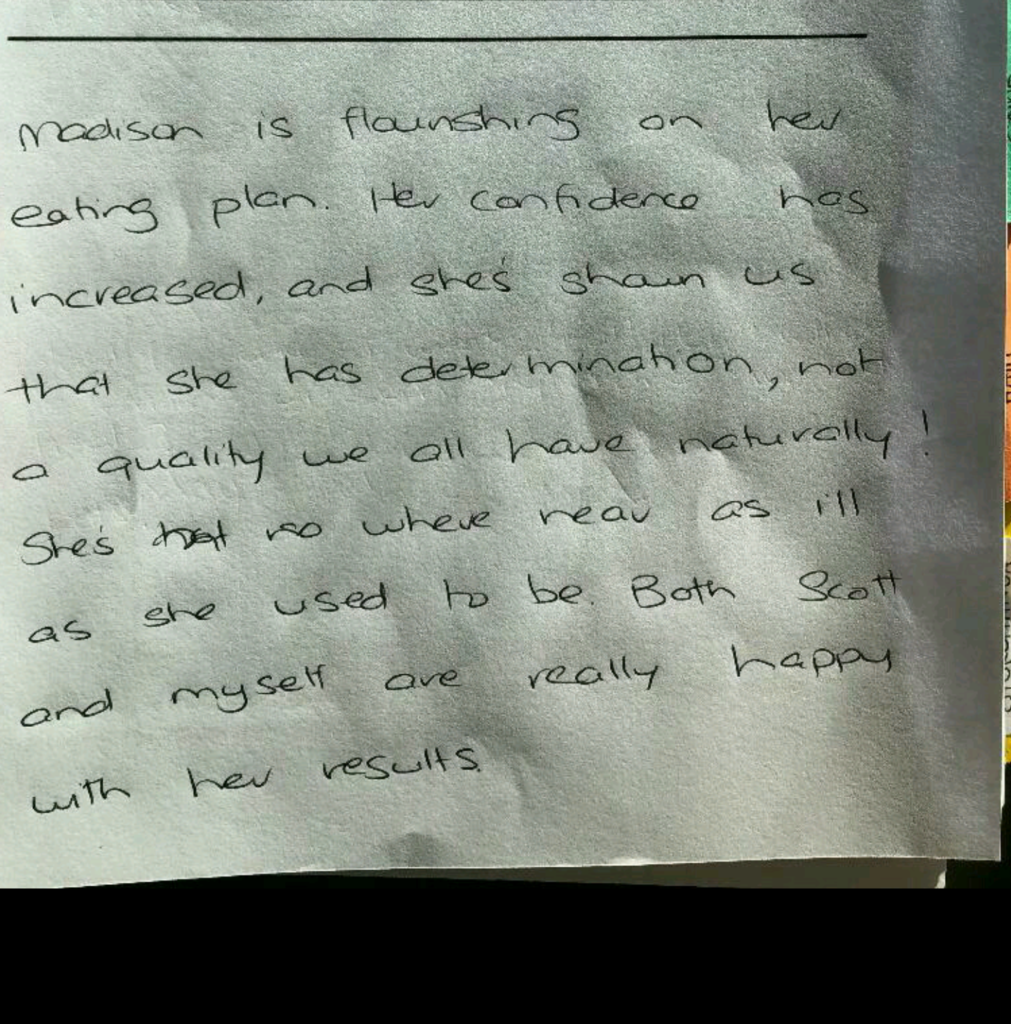 Madison is flourishing on her
eating plan. Her confidence has
increased, and she's shown us
that she has determination, not
a quality we all have naturally!
She's no where near as ill
as she used to be. Both Scott
and myself are really happy
with her results.